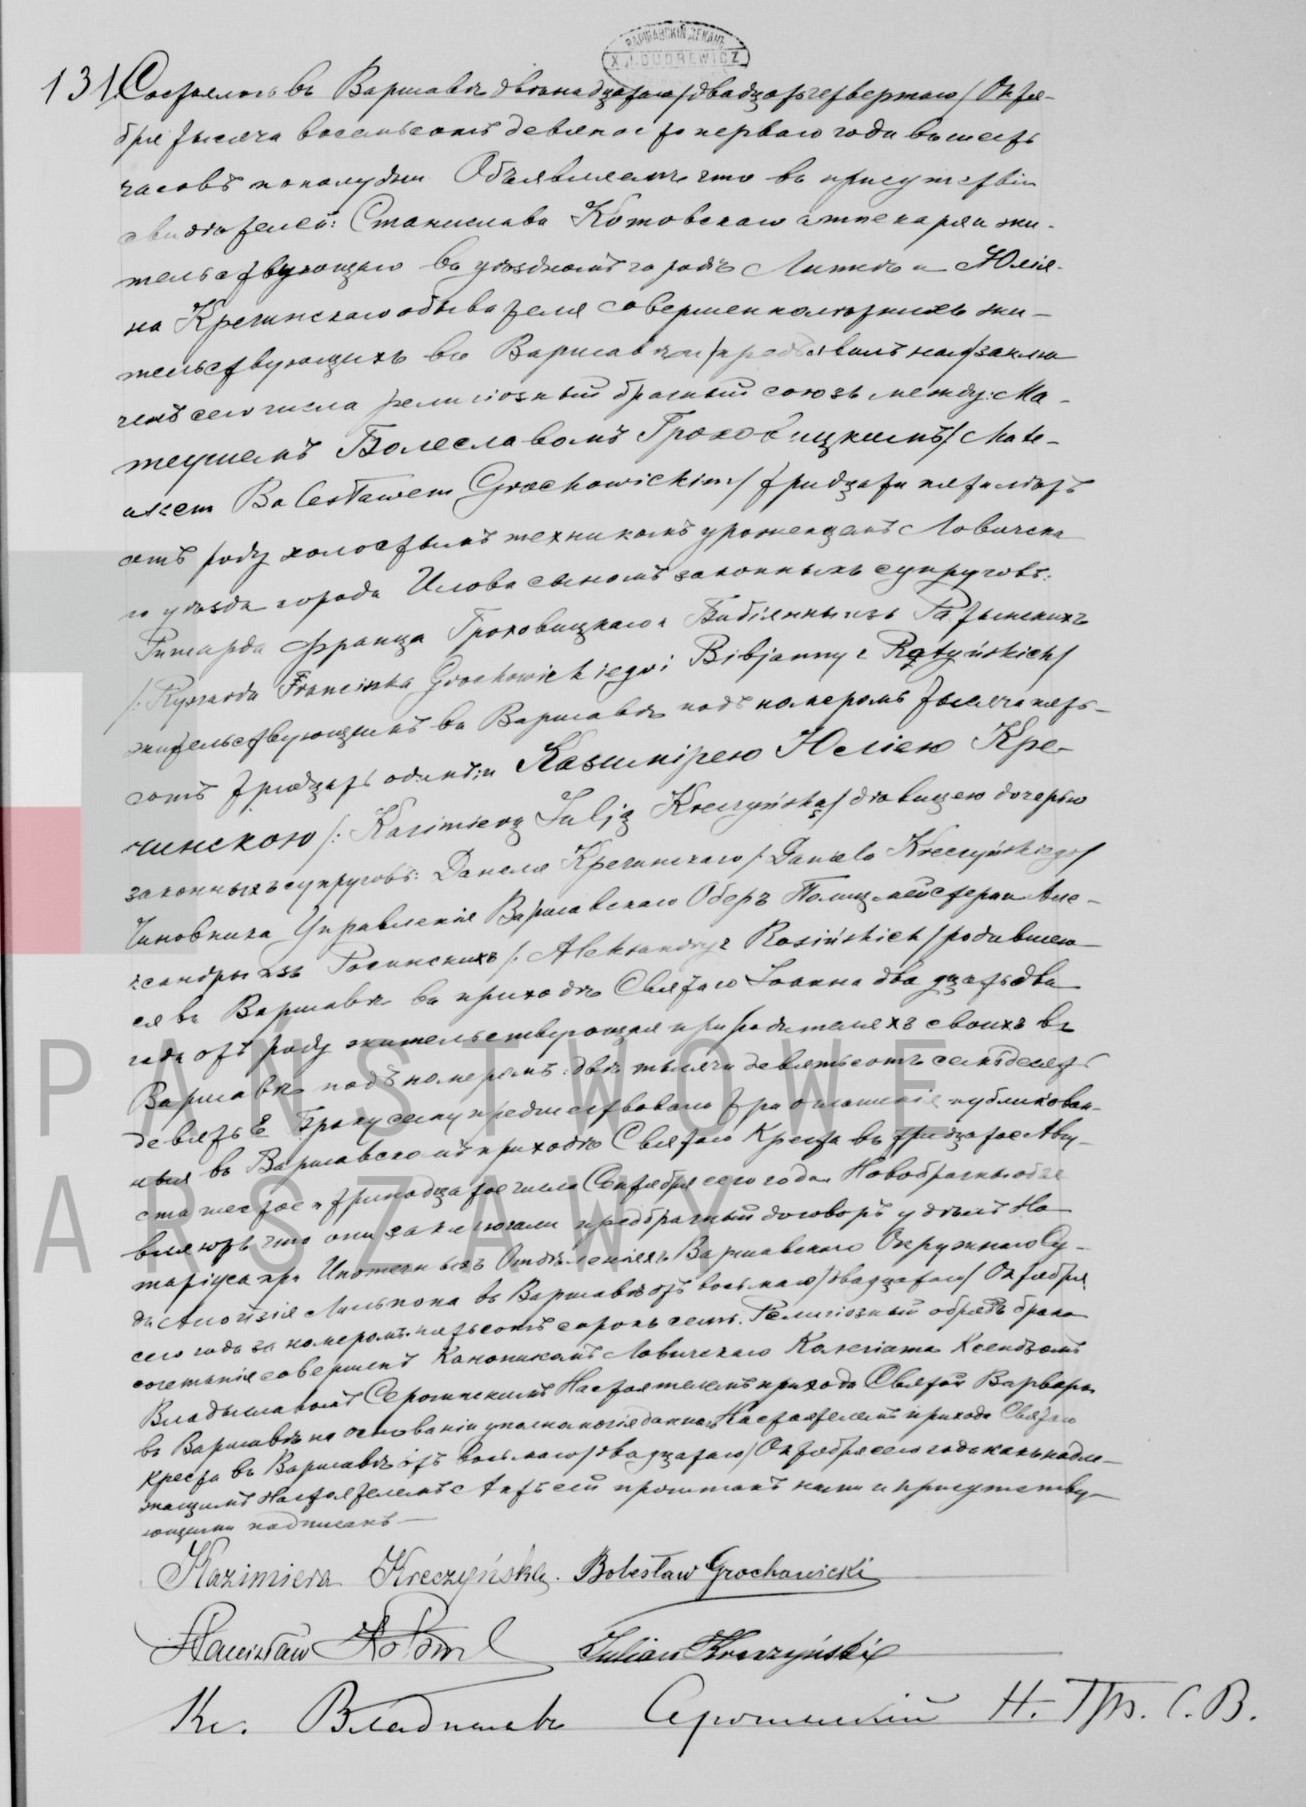 ВАРШАВСКІЙ ДЕКАНЪ
X. J. DUDREWICZ
131. Состоялось въ Варшавѣ двѣнадцатаго /двадцать четвертаго/ Октя-
бря тысяча восемьсотъ девяносто перваго года въ шесть
часовъ пополудни. Объявляемъ что въ присутствіи
свидѣтелей: Станислава Котовскаго аптекаря жи-
тельствующаго въ уѣздномъ городѣ и Юлія-
на Кречинскаго обывателя совершеннолѣтнихъ жи-
тельствующихъ въ Варшавѣ заклю
ченъ сего числа религіозный брачный союзъ между: Ма-
теушемъ Болеславомъ Гроховицкимъ /Mate-
uszem Bolesławem Grochowickim/ тридцати пяти лѣтъ
отъ роду холостымъ техникомъ урожденцемъ Ловичска
го уѣзда города Илова сыномъ законныхъ супруговъ:
Ришарда Франца Гроховицкаго и Бибіянны изъ Ратынскихъ
/:Ryszarda Franciszka Grochowickiego i Bibjanny z Ratyńskich/
жительствующимъ въ Варшавѣ подъ номеромъ тысяча пять-
сотъ тридцать одинъ: и Казимірею Юліею Кре-
чинскою /:Kazimierą Julją Kreczyńską/ дѣвицею дочерью
законныхъ супруговъ: Данеля Кречинскаго /Daniela Kreczyńskiego/
Чиновника Управленія Варшавскаго Оберъ Полицмейстера и Але-
ксандры изъ Росинскихъ /:Aleksandry z Rosińskich/ родившею
ся въ Варшавѣ въ приходѣ Святаго Іоанна двадцать два
года отъ роду жительствующая при родителяхъ своихъ въ
Варшавѣ подъ номеромъ: двѣ тысячи девятьсотъ семьдесятъ
девять Е Браку сему предшествовало три оглашенія публикован-
ныя въ Варшавскомъ приходѣ Святаго Креста въ тридцатое Авгу-
ста шестое и тринадцатое числа Сентября сего года. Новобрачные объя
вляютъ что они заключили предбрачный договоръ у дѣлъ Но
таріуса при Ипотечныхъ Отдѣленіяхъ Варшавскаго Окружнаго Су-
да въ Варшавѣ отъ восьмаго /двадцатаго/ Октября
сего года за номеромъ: пятьсотъ сорокъ семь. Религіозный обрядъ брако
сочетанія совершенъ Каноникомъ Ловичскаго Колегіата Ксендзомъ
Владыславомъ Серочинскимъ Настоятелемъ прихода Святой Варвары
въ Варшавѣ на основаніи уполномочія даннаго Настоятелемъ прихода Святаго
Креста въ Варшавѣ отъ восьмаго /двадцатаго/ Октября сего года какъ надле-
жащимъ Настоятелемъ Актъ сей прочитанъ нами и присутству-
ющими подписанъ —
Kazimiera Kreczyńska. Bolesław Grochowicki
Stanisław Kotowski Julian Kreczyński
Кс. Владиславъ Н. Пр. С. В.
PAŃSTWOWE
ARSZAWY